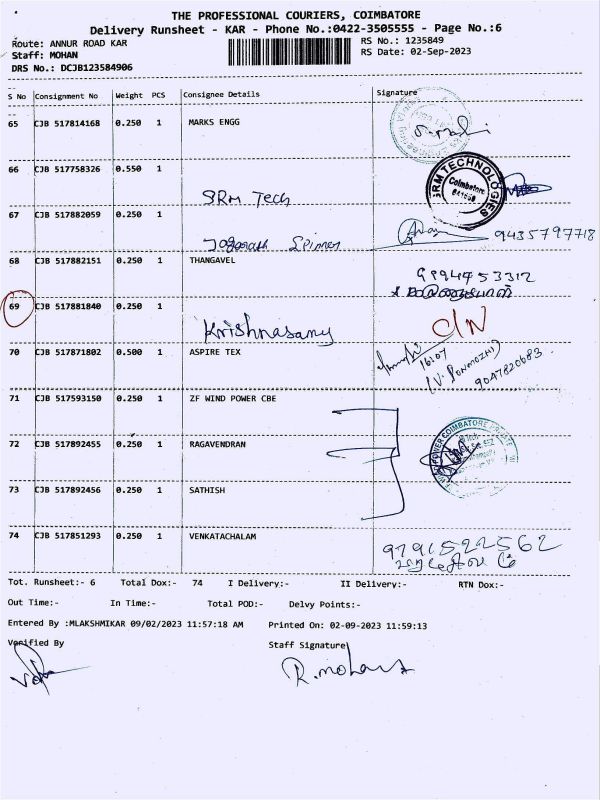 THE PROFESSIONAL COURIERS, COIMBATORE
Delivery Runsheet - KAR - Phone No.:0422-3505555 - Page No.:6
Route: ANNUR ROAD KAR
RS No.: 1235849
Staff: MOHAN
RS Date: 02-Sep-2023
DRS No.: DCJB123584906
S No Consignment No Weight PCS Consignee Details Signature
65 CJB 517814168 0.250 1 MARKS ENGG
66 CJB 517758326 0.550 1
SRM Tech
SRM TECHNOLOGIES
Coimbatore
67 CJB 517882059 0.250 1
9435797718
68 CJB 517882151 0.250 1 THANGAVEL
9994453312
69 CJB 517881840 0.250 1
Krishnasamy
C/N
70 CJB 517871802 0.500 1 ASPIRE TEX
16:07
(V. PONMOZHI)
9047820683
71 CJB 517593150 0.250 1 ZF WIND POWER CBE
72 CJB 517892455 0.250 1 RAGAVENDRAN
POWER COIMBATORE PRIVATE
73 CJB 517892456 0.250 1 SATHISH
74 CJB 517851293 0.250 1 VENKATACHALAM
9791522562
Tot. Runsheet:- 6 Total Dox:- 74 I Delivery:- II Delivery:- RTN Dox:-
Out Time:- In Time:- Total POD:- Delvy Points:-
Entered By :MLAKSHMIKAR 09/02/2023 11:57:18 AM Printed On: 02-09-2023 11:59:13
Verified By Staff Signature
R. Mohan